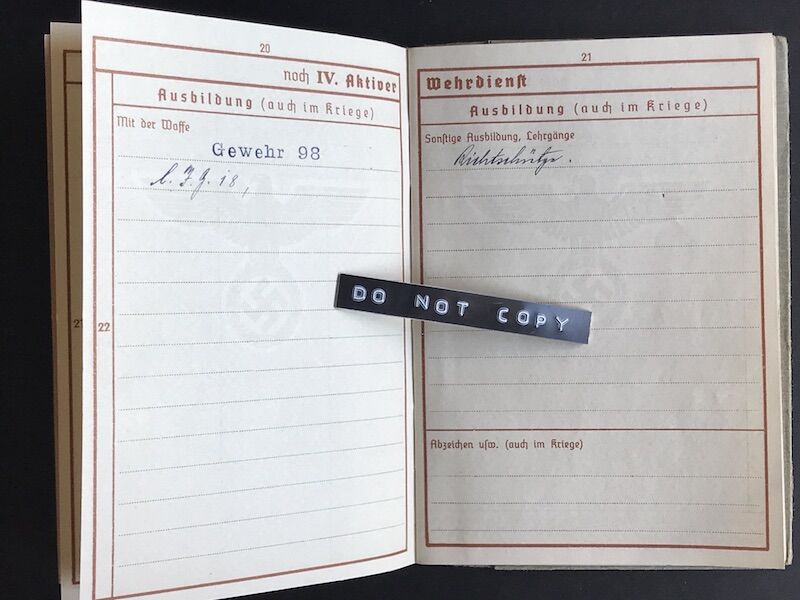 20
noch IV. Aktiver
Ausbildung (auch im Kriege)
Mit der Waffe
Gewehr 98
l. I.G. 18,
22
21
Wehrdienst
Ausbildung (auch im Kriege)
Sonstige Ausbildung, Lehrgänge
Richtschütze.
DO NOT COPY
Abzeichen usw. (auch im Kriege)